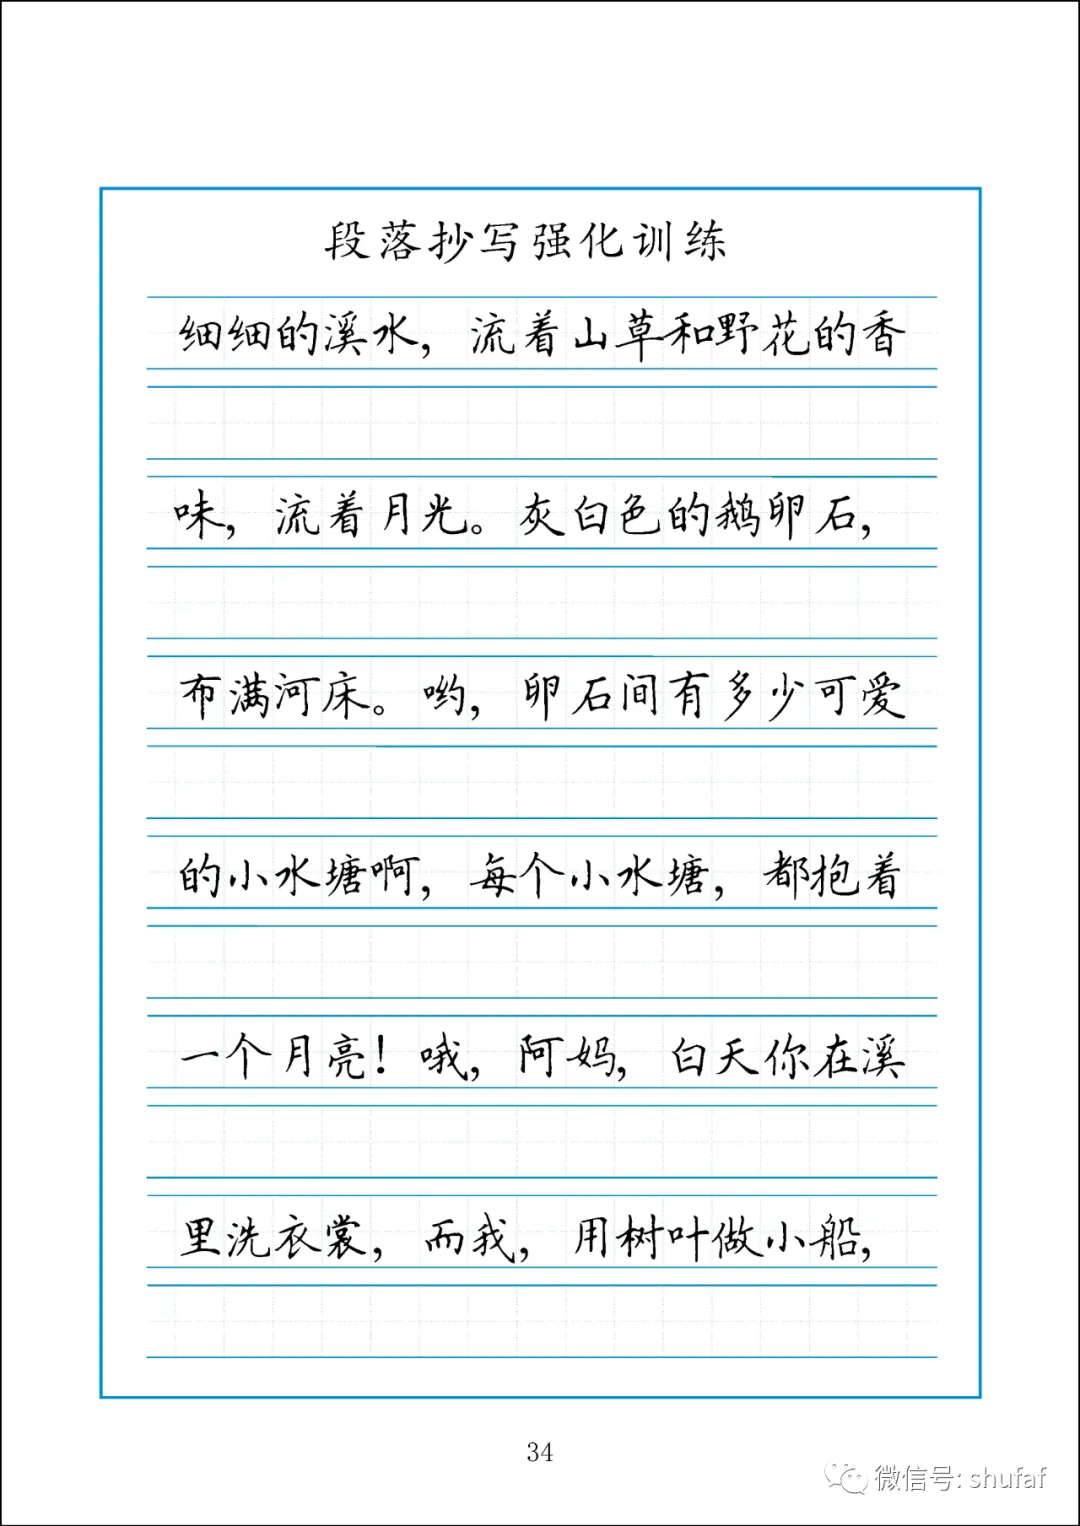 段落抄写强化训练
细细的溪水，流着山草和野花的香
味，流着月光。灰白色的鹅卵石，
布满河床。哟，卵石间有多少可爱
的小水塘啊，每个小水塘，都抱着
一个月亮！哦，阿妈，白天你在溪
里洗衣裳，而我，用树叶做小船，
34
微信号: shufaf